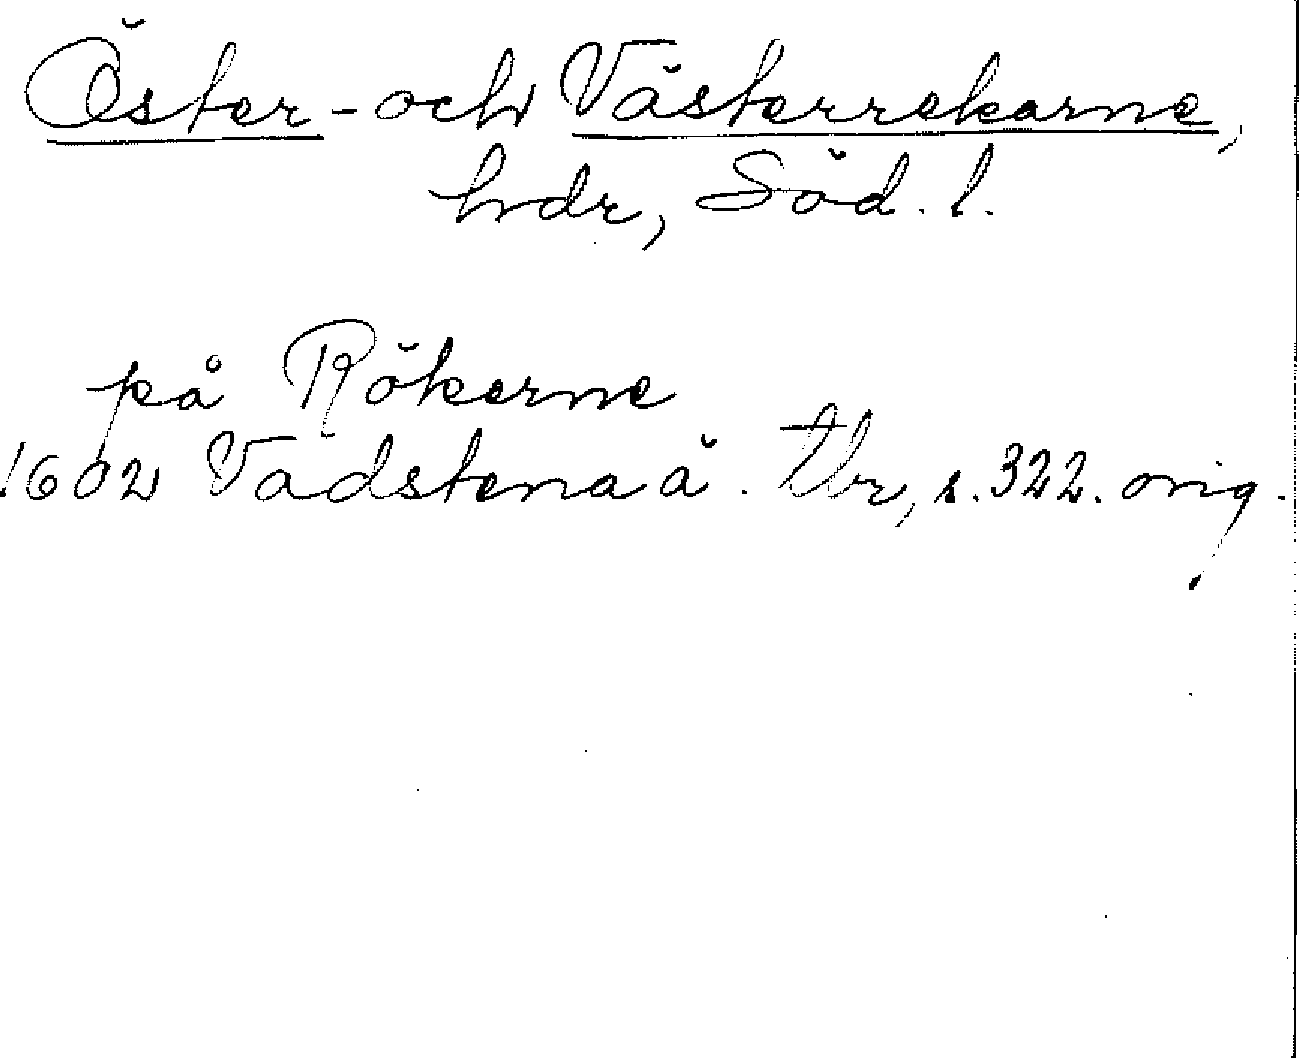 Öster- och Västerrekarne,
hdr, Söd. l.
på Rökerne
1602 Vadstena ä. tbr, s. 322. orig.